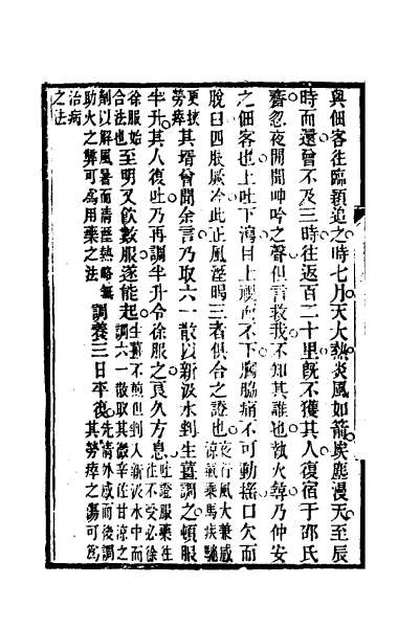 與佃客往臨頴追之時七月天大熱炎風如箭埃塵漫天至辰
時而還曾不及三時往返百二十里旣不獲其人復宿于邵氏
齋忽夜聞呻吟之聲但言救我不知其誰也執火尋乃仲安
之佃客也上吐下瀉目上視而不下胸脇痛不可動搖口欠而
脫臼四肢厥冷此正風溼暍三者俱合之證也夜行風大兼感涼氣乘馬疾馳
更挾勞瘁其壻曾聞余言乃取六一散以新汲水剉生薑調之頓服
半升其人復吐乃再調半升令徐服之良久方息吐證服藥往往不受必徐
徐服始合法也至明又飲數服遂能起生薑不煎但剉入新汲水中而調六一散取其微辛佐甘涼之
劑以解風暑而清溼熱略無助火之弊可爲用藥之法調養三日平復先清外感而後調其勞瘁之傷可爲
治病之法